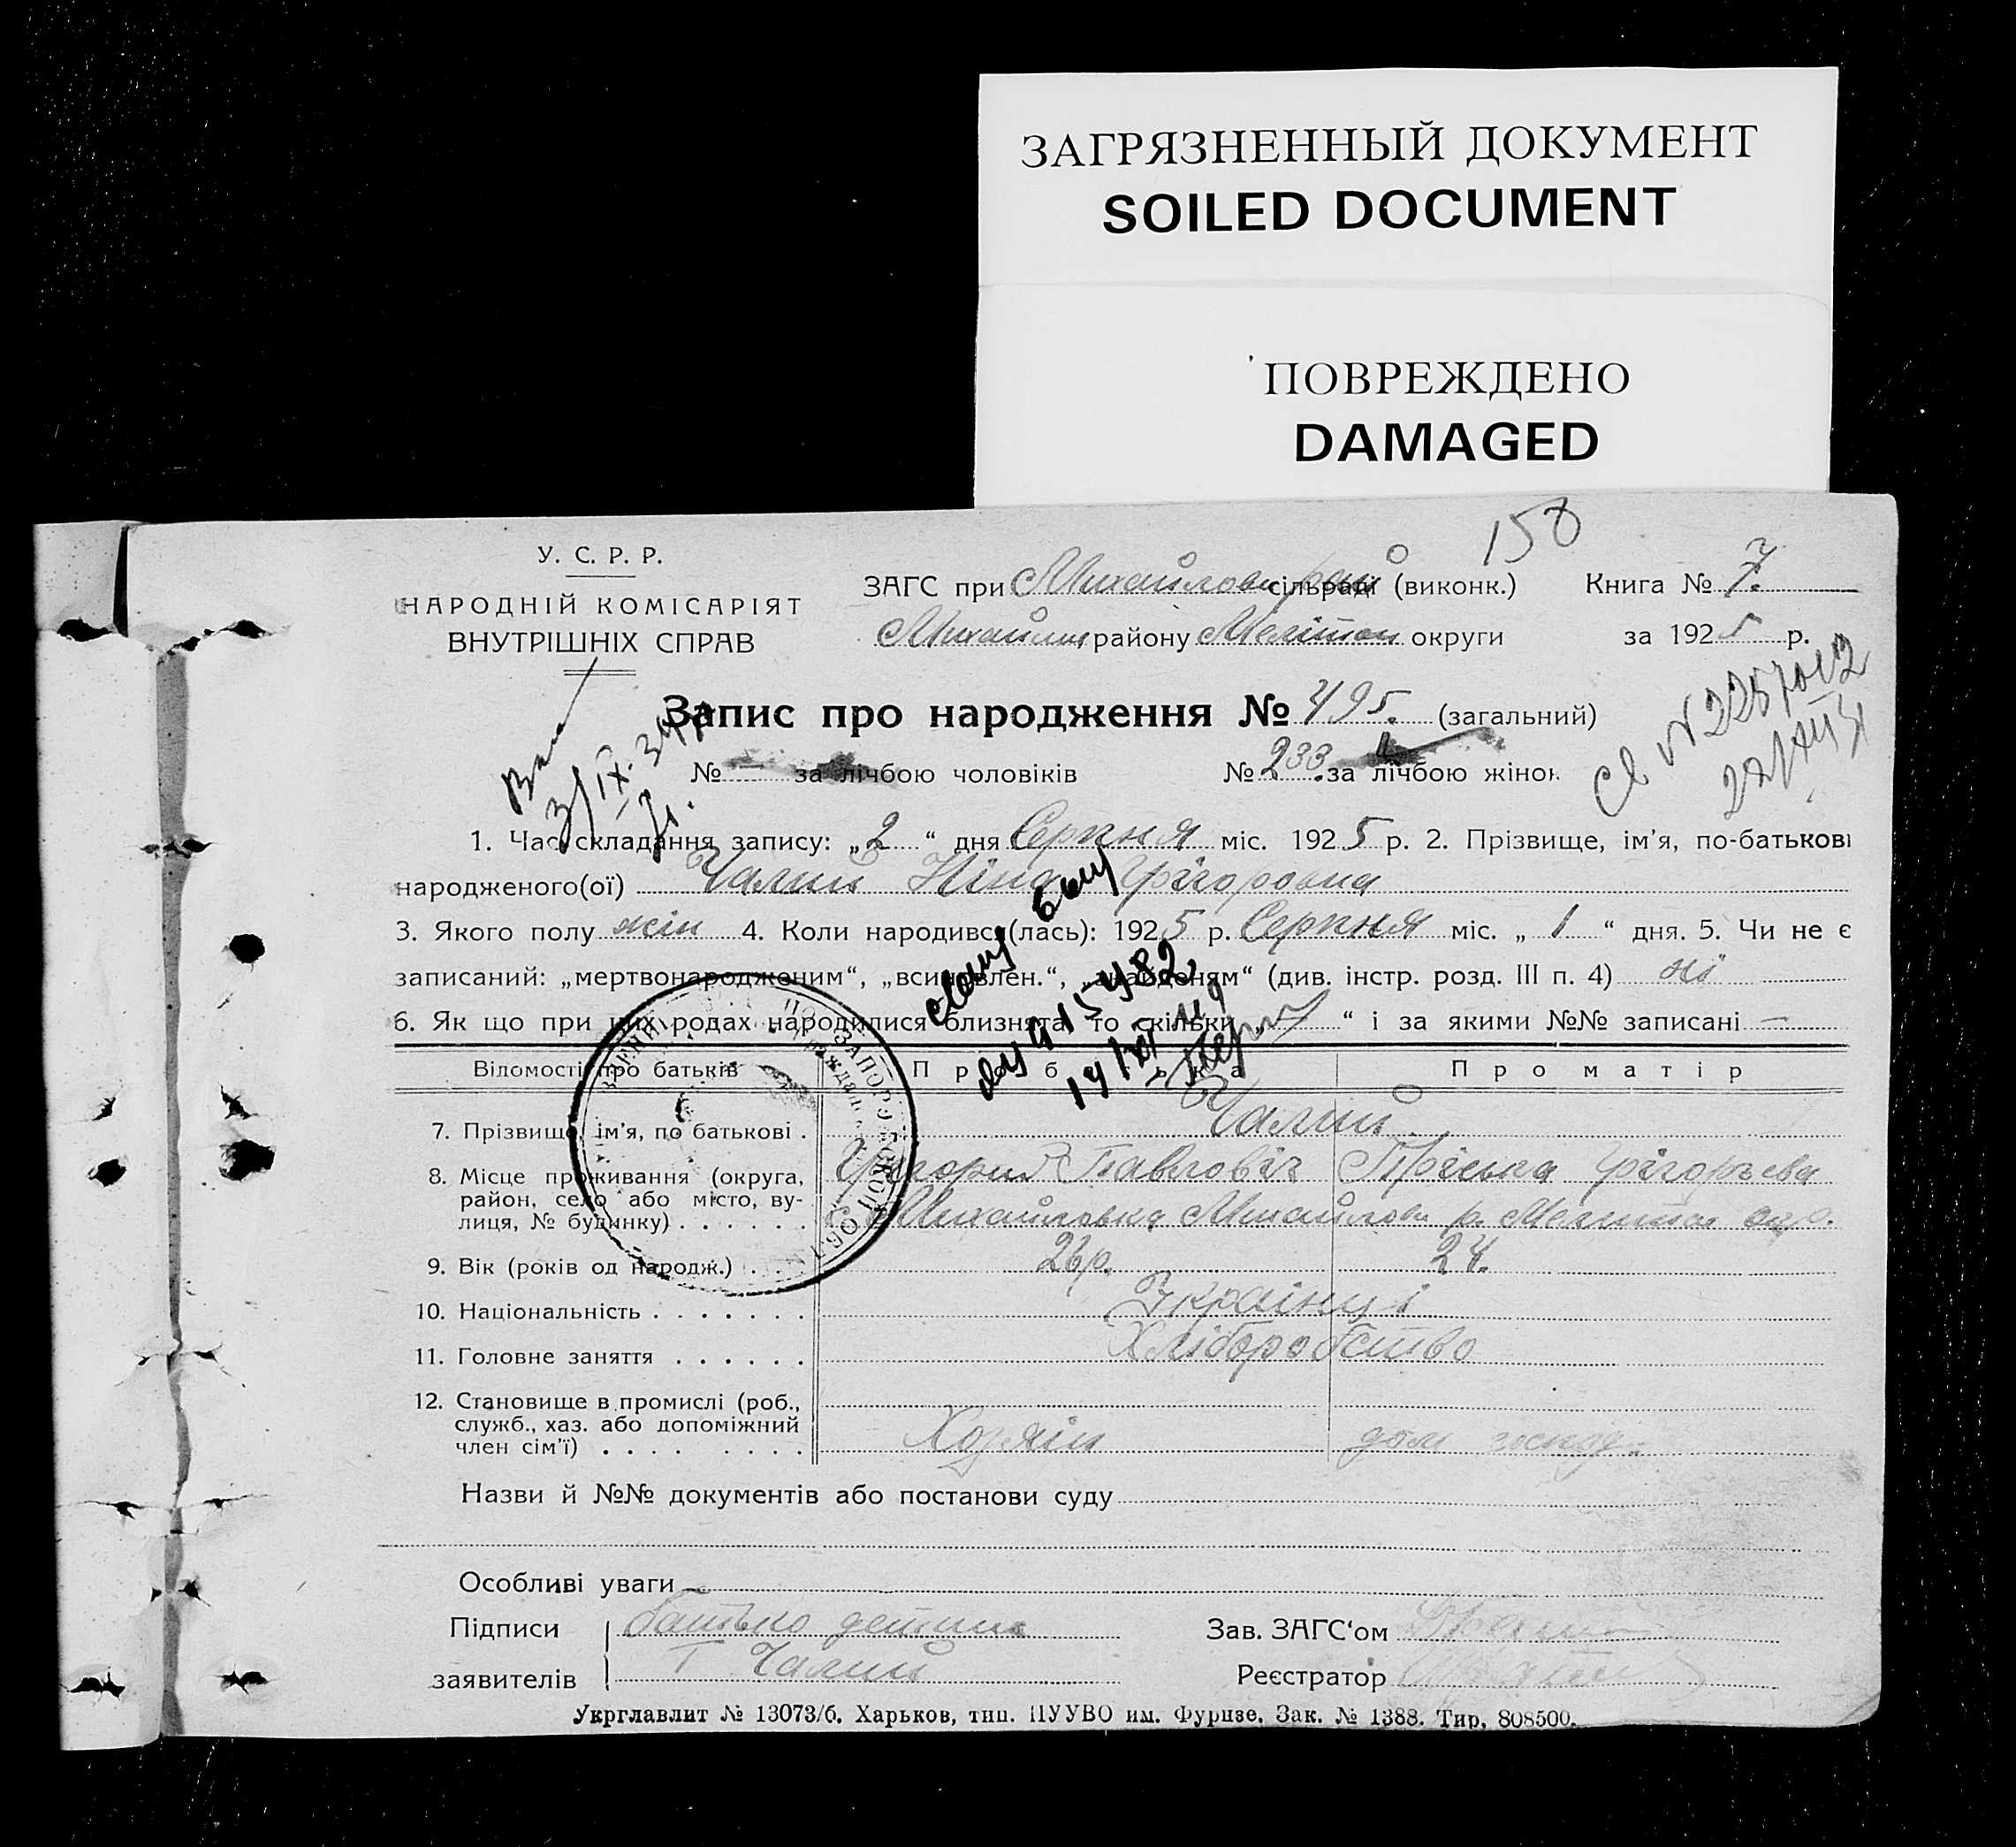 ЗАГРЯЗНЕННЫЙ ДОКУМЕНТ
SOILED DOCUMENT
ПОВРЕЖДЕНО
DAMAGED
158
У. С. Р. Р.
НАРОДНІЙ КОМІСАРІЯТ
ВНУТРІШНІХ СПРАВ
ЗАГС при Михайлов рай сільраді (виконк.) Книга № 7.
Михайлів району Мелітоп округи за 1925 р.
Запис про народження № 495. (загальний)
№ — за лічбою чоловіків № 233 за лічбою жінок
1. Час складання запису: „2“ дня Серпня міс. 1925 р. 2. Прізвище, ім'я, по-батькові
народженого(ої) Чалий Ніна Грігоровна
3. Якого полу жін 4. Коли народився(лась): 1925 р. Серпня міс. „1“ дня. 5. Чи не є
записаний: „мертвонародженим“, „всиновлен.“, „знайденям“ (див. інстр. розд. III п. 4) ні
6. Як що при цих родах народилися близнята, то скільки “ і за якими №№ записані —
Відомості про батьків Про батька Про матір
7. Прізвище, ім'я, по батькові . Чалий
Грігорий Павловіч Пріська Грігорьева
8. Місце проживання (округа,
район, село або місто, ву-
лиця, № будинку) . . . . . . с. Михайловка Михайлов р. Мелитоп окр.
9. Вік (років од народж.) . . . 26 р. 24.
10. Національність . . . . . . . Українці
11. Головне заняття . . . . . . Хліборобство
12. Становище в промислі (роб.,
служб., хаз. або допоміжний
член сім'ї) . . . . . . . . Хозяін дом господ.
Назви й №№ документів або постанови суду
Особливі уваги —
Підписи батько детини Зав. ЗАГС'ом
заявителів Г Чалий Реєстратор
Укрглавлит № 13073/б. Харьков, тип. ПУУВО им. Фрунзе. Зак. № 1388. Тир. 808500.